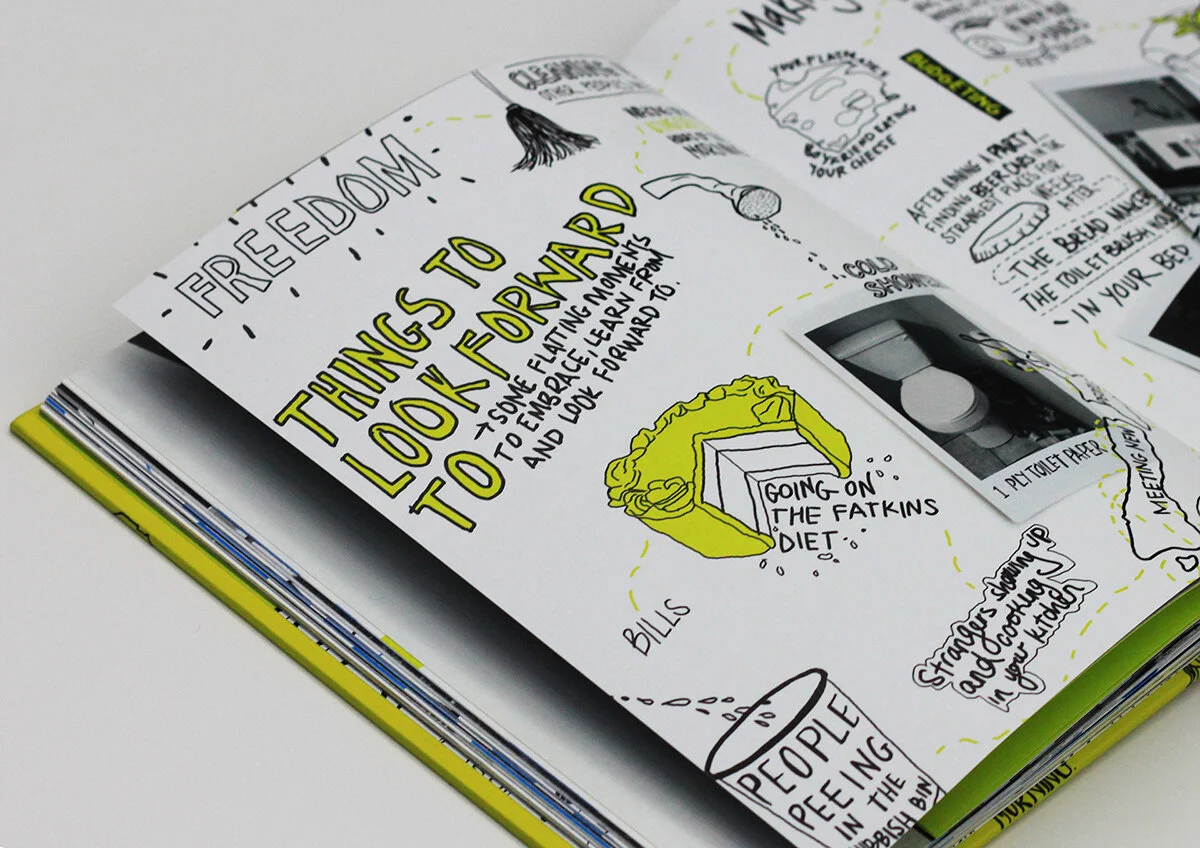 FREEDOM
CLEANING
OTHER PEOPLE'S
THINGS TO
LOOK FORWARD
TO
→SOME FLATTING MOMENTS
TO EMBRACE, LEARN FROM
AND LOOK FORWARD TO.
COLD
GOING ON
THE FATKINS
DIET
BILLS
PEOPLE
PEEING
IN THE
BIN
1 PLY TOILET PAPER
Strangers showing up
and cooking
in your kitchen
MEETING NEW
YOUR FLATMATE'S
EATING
YOUR CHEESE
BUDGETING
AFTER A PARTY
FINDING BEER CANS IN THE
STRANGEST PLACES FOR
WEEKS
AFTER
THE BREAD MAKER
THE TOILET BRUSH
IN YOUR BED
MORNING.